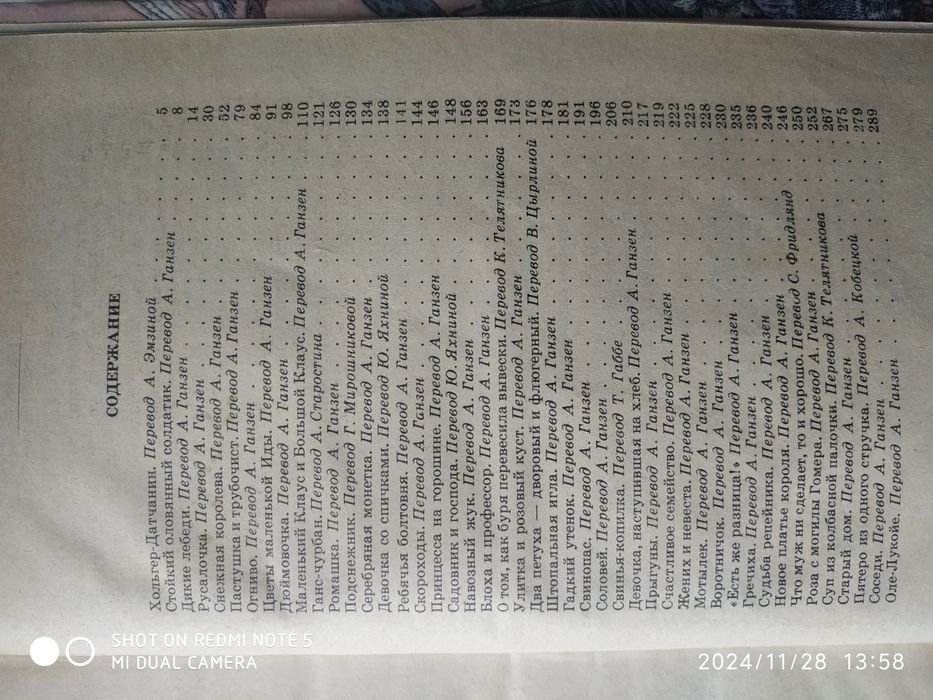 СОДЕРЖАНИЕ
Хольгер-Датчанин. Перевод А. Эмзиной . . . 5
Стойкий оловянный солдатик. Перевод А. Ганзен . . . 8
Дикие лебеди. Перевод А. Ганзен . . . 14
Русалочка. Перевод А. Ганзен . . . 30
Снежная королева. Перевод А. Ганзен . . . 52
Пастушка и трубочист. Перевод А. Ганзен . . . 79
Огниво. Перевод А. Ганзен . . . 84
Цветы маленькой Иды. Перевод А. Ганзен . . . 91
Дюймовочка. Перевод А. Ганзен . . . 98
Маленький Клаус и Большой Клаус. Перевод А. Ганзен . . . 110
Ганс-чурбан. Перевод А. Старостина . . . 121
Ромашка. Перевод А. Ганзен . . . 126
Подснежник. Перевод Г. Мирошниковой . . . 130
Серебряная монетка. Перевод А. Ганзен . . . 134
Девочка со спичками. Перевод Ю. Яхниной . . . 138
Ребячья болтовня. Перевод А. Ганзен . . . 141
Скороходы. Перевод А. Ганзен . . . 144
Принцесса на горошине. Перевод А. Ганзен . . . 146
Садовник и господа. Перевод Ю. Яхниной . . . 148
Навозный жук. Перевод А. Ганзен . . . 156
Блоха и профессор. Перевод А. Ганзен . . . 163
О том, как буря перевесила вывески. Перевод К. Телятникова 169
Улитка и розовый куст. Перевод А. Ганзен . . . 173
Два петуха — дворовый и флюгерный. Перевод В. Цырлиной 176
Штопальная игла. Перевод А. Ганзен . . . 178
Гадкий утенок. Перевод А. Ганзен . . . 181
Свинопас. Перевод А. Ганзен . . . 191
Соловей. Перевод А. Ганзен . . . 196
Свинья-копилка. Перевод Т. Габбе . . . 206
Девочка, наступившая на хлеб. Перевод А. Ганзен . . . 210
Прыгуны. Перевод А. Ганзен . . . 217
Счастливое семейство. Перевод А. Ганзен . . . 219
Жених и невеста. Перевод А. Ганзен . . . 222
Мотылек. Перевод А. Ганзен . . . 225
Воротничок. Перевод А. Ганзен . . . 228
«Есть же разница!» Перевод А. Ганзен . . . 230
Гречиха. Перевод А. Ганзен . . . 235
Судьба репейника. Перевод А. Ганзен . . . 236
Новое платье короля. Перевод А. Ганзен . . . 240
Что муж ни сделает, то и хорошо. Перевод С. Фридлянд . . . 246
Роза с могилы Гомера. Перевод А. Ганзен . . . 250
Суп из колбасной палочки. Перевод К. Телятникова . . . 252
Старый дом. Перевод А. Ганзен . . . 267
Пятеро из одного стручка. Перевод А. Кобецкой . . . 275
Соседи. Перевод А. Ганзен . . . 279
Оле-Лукойе. Перевод А. Ганзен . . . 289
SHOT ON REDMI NOTE 5
MI DUAL CAMERA
2024/11/28 13:58